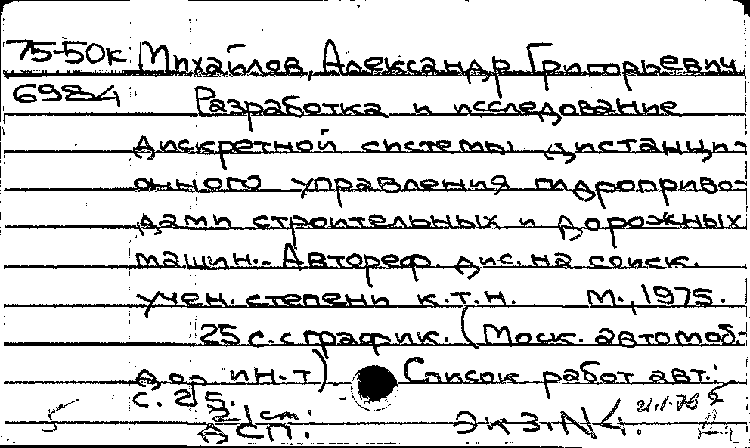 75-50к Михайлов, Александр Григорьевич.
6984 Разработка и исследование
дискретной системы дистанци-
онного управления гидроприво-
дами строительных и дорожных
машин.- Автореф. дис. на соиск.
учен. степени к.т.н. М., 1975.
25 с. с график. (Моск. автомоб.-
дор ин-т) Список работ авт.:
с. 25.
ДСП. экз. N4.